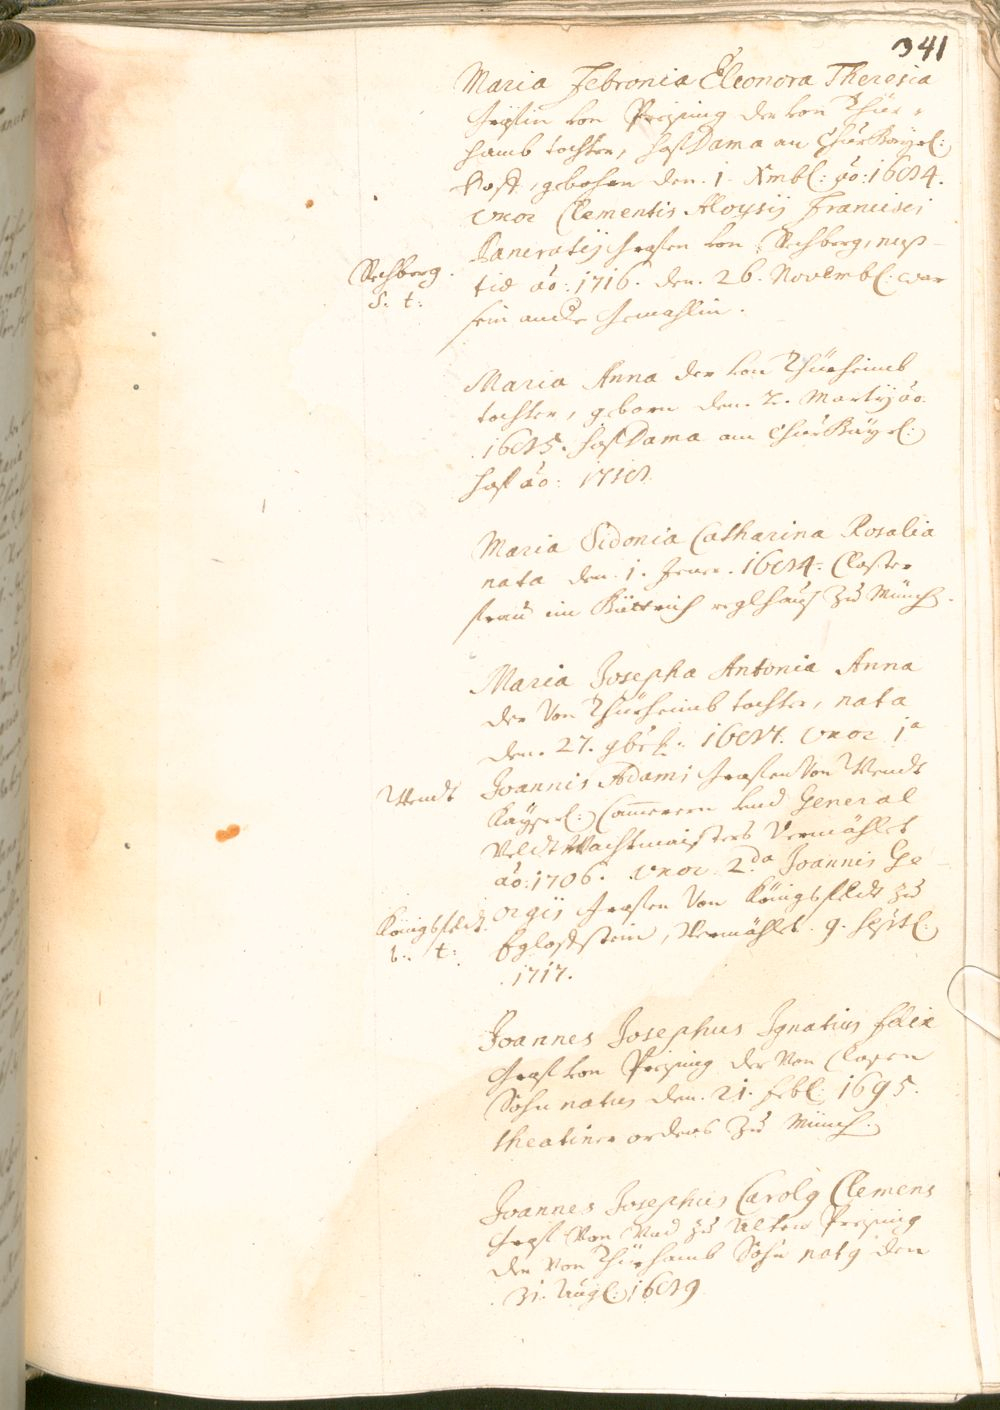 341
Maria Febronia Eleonora Theresia
Gräfin von Preÿsing der von Thür-
hamb tochter, hof Dama am ChurBaÿrl:
Hoff, gebohrn den. 1. Xmbl: ao: 1684.
vxor Clementis Aloysij Francisci
Pancratij Grafen von Rechberg, nup-
tiæ ao: 1716. den. 26. Novembl: war
sein andre Gemahlin.
Rechberg.
S. t:
Maria Anna der von Thürheimb
tochter, geborn den. 2. Martij ao.
.1685. hof Dama am ChurBaÿrl:
hof ao: 1718.
Maria Sidonia Catharina Rosalia
nata den. 1. Jener. 1684. Closter
frau im Püttrich reglhauß zu Münch.
Maria Josepha Antonia Anna
der von Thürheimb tochter, nata
den. 27. 9br: 1687. vxor 1a
Joannis Adami Grafen von Wendt
Kaÿserl: Camerern und General
Veldt Wachtmaisters Vermählet
ao: 1706. vxor 2.da Joannis Ge-
orgij Grafen von Königsfeldt zu
Egloffstein, Vermählet. 9. Septl:
.1717.
Wendt
Königsfeldt.
v. t:
Joannes Josephus Ignatius Felix
Graf von Preÿsing der von Closen
Sohn natus den. 21. Febl: 1695.
theatiner ordens zu Münch.
Joannes Josephus Carolg Clemens
Graf von Vnd zu Alten Preÿsing
der von Thürhamb Sohn natg den
.31. Augl: 1689